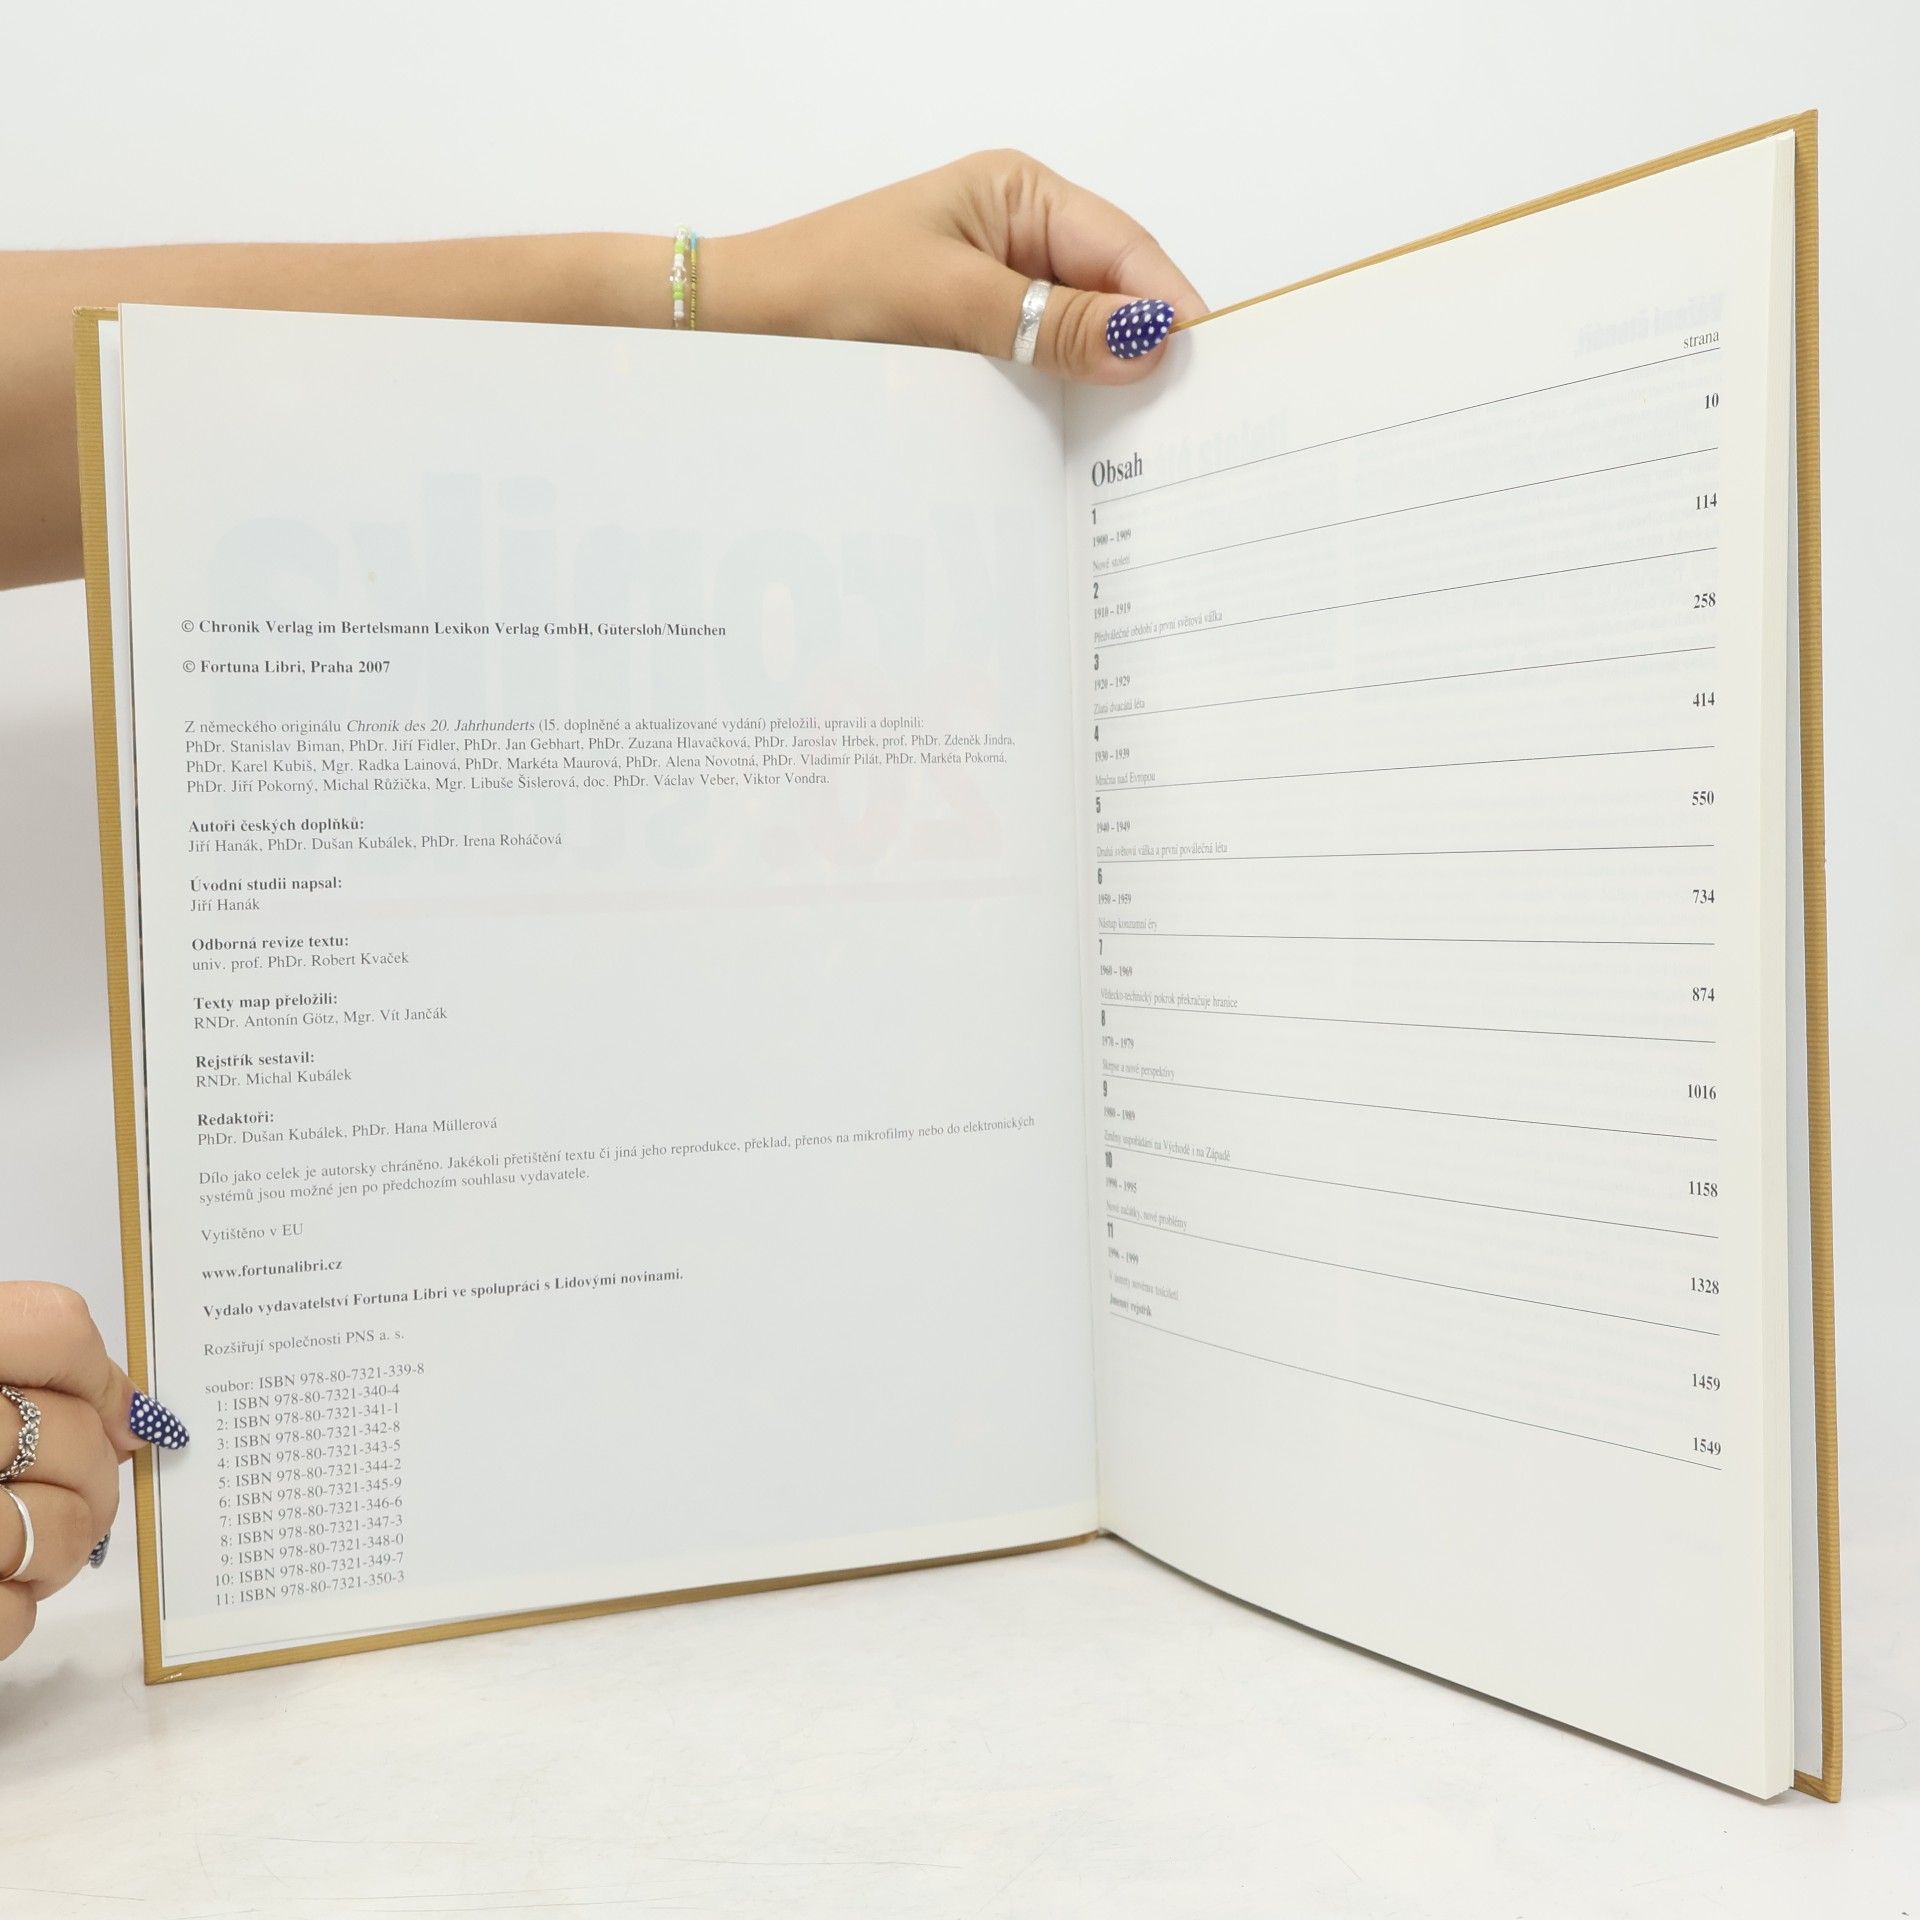 © Chronik Verlag im Bertelsmann Lexikon Verlag GmbH, Gütersloh/München
© Fortuna Libri, Praha 2007
Z německého originálu Chronik des 20. Jahrhunderts (15. doplněné a aktualizované vydání) přeložili, upravili a doplnili:
PhDr. Stanislav Biman, PhDr. Jiří Fidler, PhDr. Jan Gebhart, PhDr. Zuzana Hlavačková, PhDr. Jaroslav Hrbek, prof. PhDr. Zdeněk Jindra,
PhDr. Karel Kubiš, Mgr. Radka Lainová, PhDr. Markéta Maurová, PhDr. Alena Novotná, PhDr. Vladimír Pilát, PhDr. Markéta Pokorná,
PhDr. Jiří Pokorný, Michal Růžička, Mgr. Libuše Šislerová, doc. PhDr. Václav Veber, Viktor Vondra.
Autoři českých doplňků:
Jiří Hanák, PhDr. Dušan Kubálek, PhDr. Irena Roháčová
Úvodní studii napsal:
Jiří Hanák
Odborná revize textu:
univ. prof. PhDr. Robert Kvaček
Texty map přeložili:
RNDr. Antonín Götz, Mgr. Vít Jančák
Rejstřík sestavil:
RNDr. Michal Kubálek
Redaktoři:
PhDr. Dušan Kubálek, PhDr. Hana Müllerová
Dílo jako celek je autorsky chráněno. Jakékoli přetištění textu či jiná jeho reprodukce, překlad, přenos na mikrofilmy nebo do elektronických
systémů jsou možné jen po předchozím souhlasu vydavatele.
Vytištěno v EU
www.fortunalibri.cz
Vydalo vydavatelství Fortuna Libri ve spolupráci s Lidovými novinami.
Rozšiřují společnosti PNS a. s.
soubor: ISBN 978-80-7321-339-8
1: ISBN 978-80-7321-340-4
2: ISBN 978-80-7321-341-1
3: ISBN 978-80-7321-342-8
4: ISBN 978-80-7321-343-5
5: ISBN 978-80-7321-344-2
6: ISBN 978-80-7321-345-9
7: ISBN 978-80-7321-346-6
8: ISBN 978-80-7321-347-3
9: ISBN 978-80-7321-348-0
10: ISBN 978-80-7321-349-7
11: ISBN 978-80-7321-350-3
Obsah strana
1
1900 – 1909
Nové století 10
2
1910 – 1919
Předválečné období a první světová válka 114
3
1920 – 1929
Zlatá dvacátá léta 258
4
1930 – 1939
Mračna nad Evropou 414
5
1940 – 1949
Druhá světová válka a první poválečná léta 550
6
1950 – 1959
Nástup konzumní éry 734
7
1960 – 1969
Vědecko-technický pokrok překračuje hranice 874
8
1970 – 1979
Skepse a nové perspektivy 1016
9
1980 – 1989
Změny uspořádání na Východě i na Západě 1158
10
1990 – 1995
Nové začátky, nové problémy 1328
11
1996 – 1999
V ústrety novému tisíciletí 1459
Jmenný rejstřík 1549